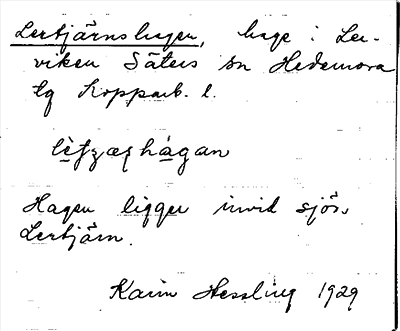 Lertjärnshagen, hage i Ler-
viken Säters sn Hedemora
tg Kopparb. l.
Hagen ligger invid sjön
Lertjärn.
Karin Hessling 1929